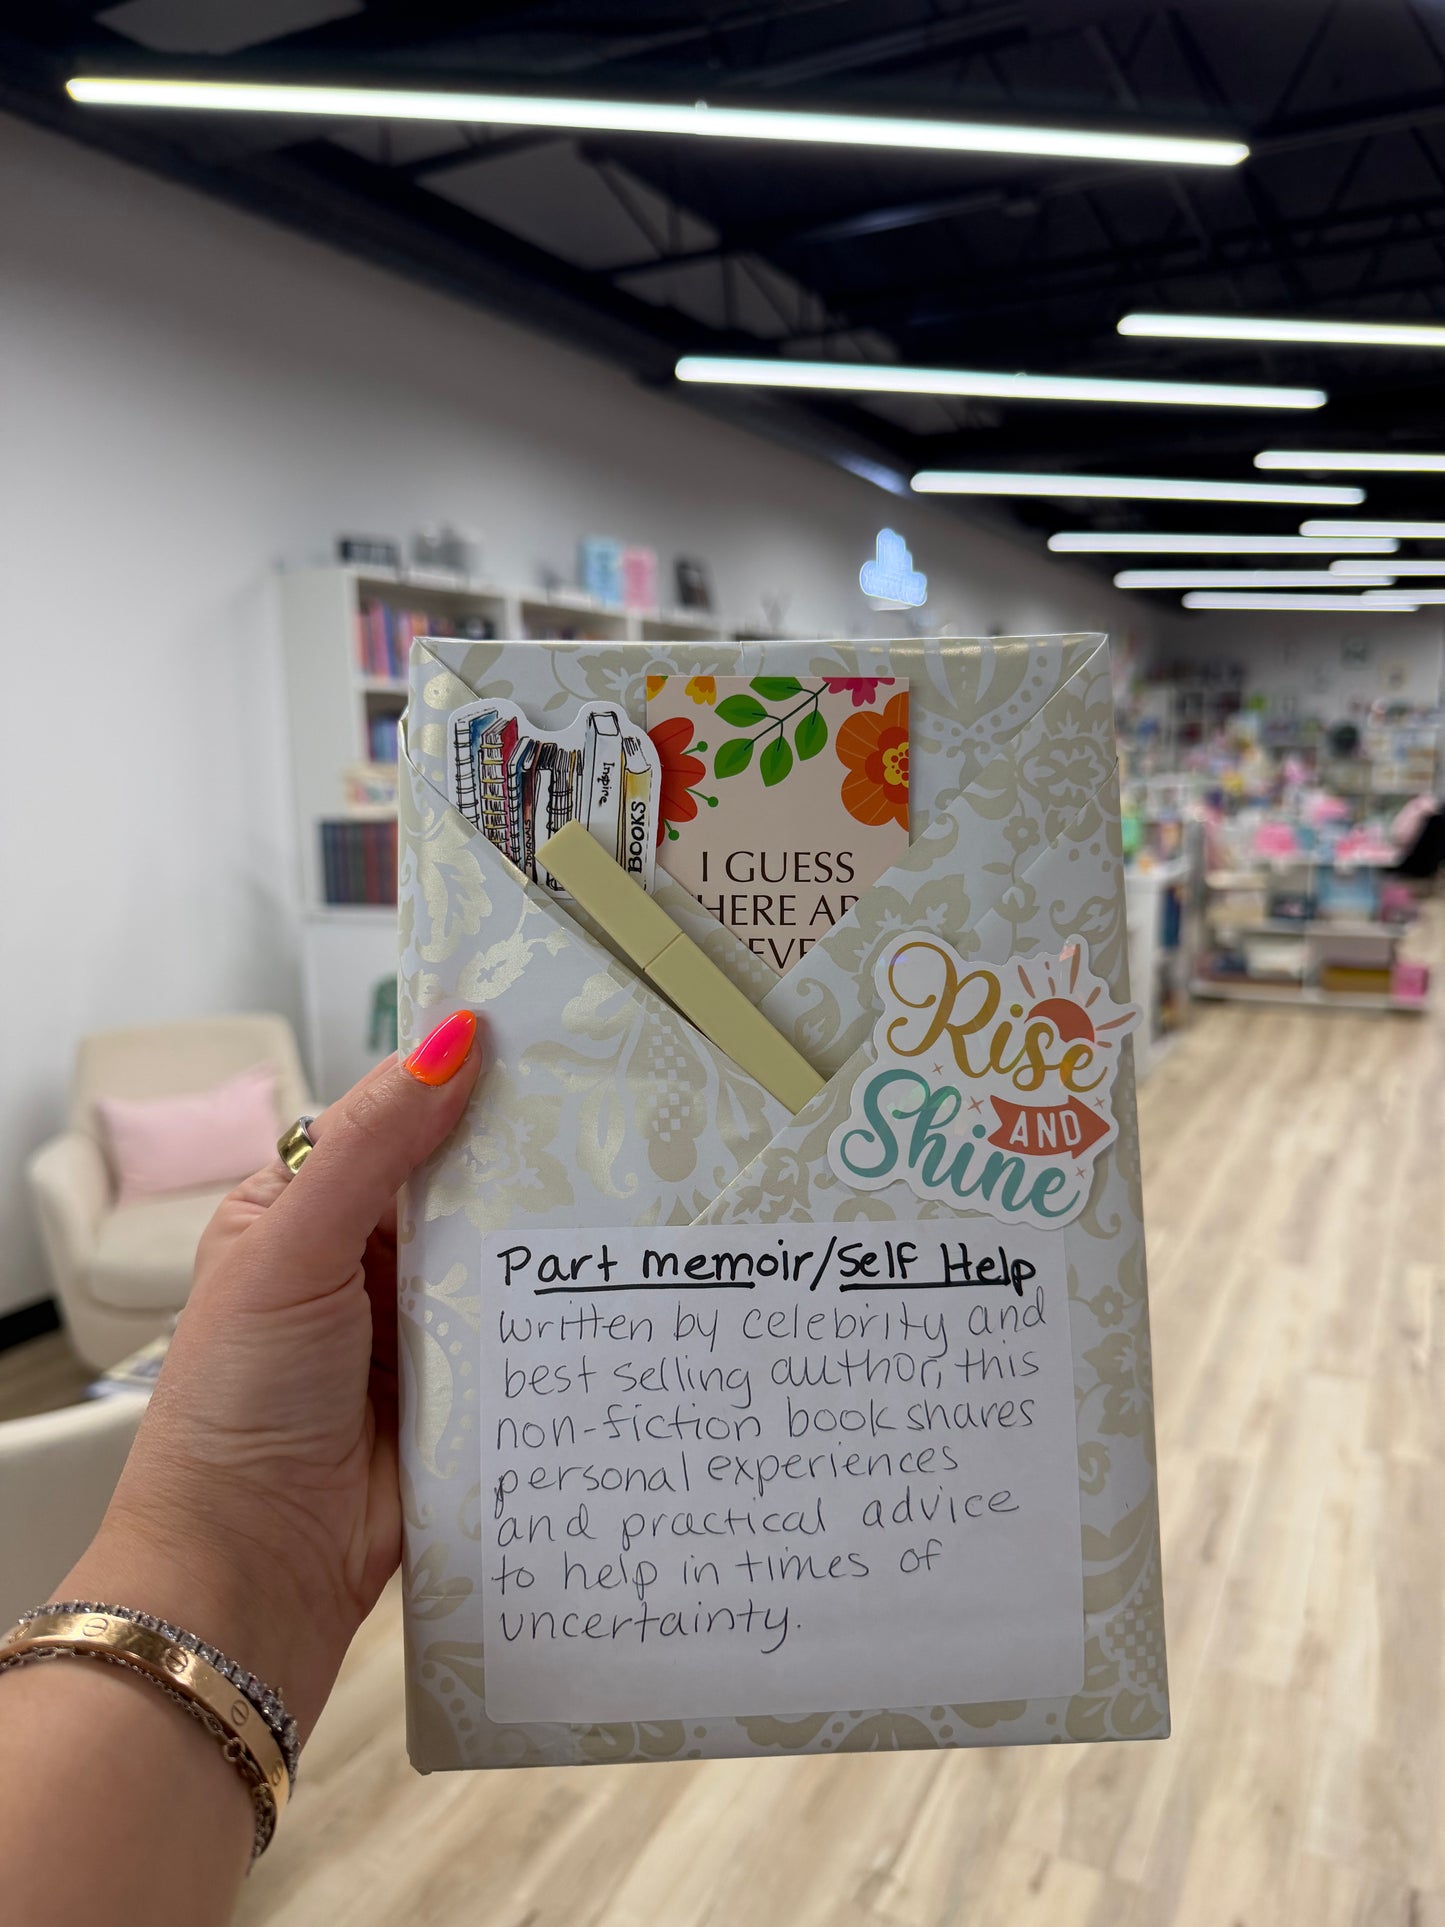 Inspire
JOURNALS
BOOKS
I GUESS
HERE AR
EVE
Rise
AND
Shine
Part memoir/Self Help
Written by celebrity and
best selling author, this
non-fiction book shares
personal experiences
and practical advice
to help in times of
uncertainty.